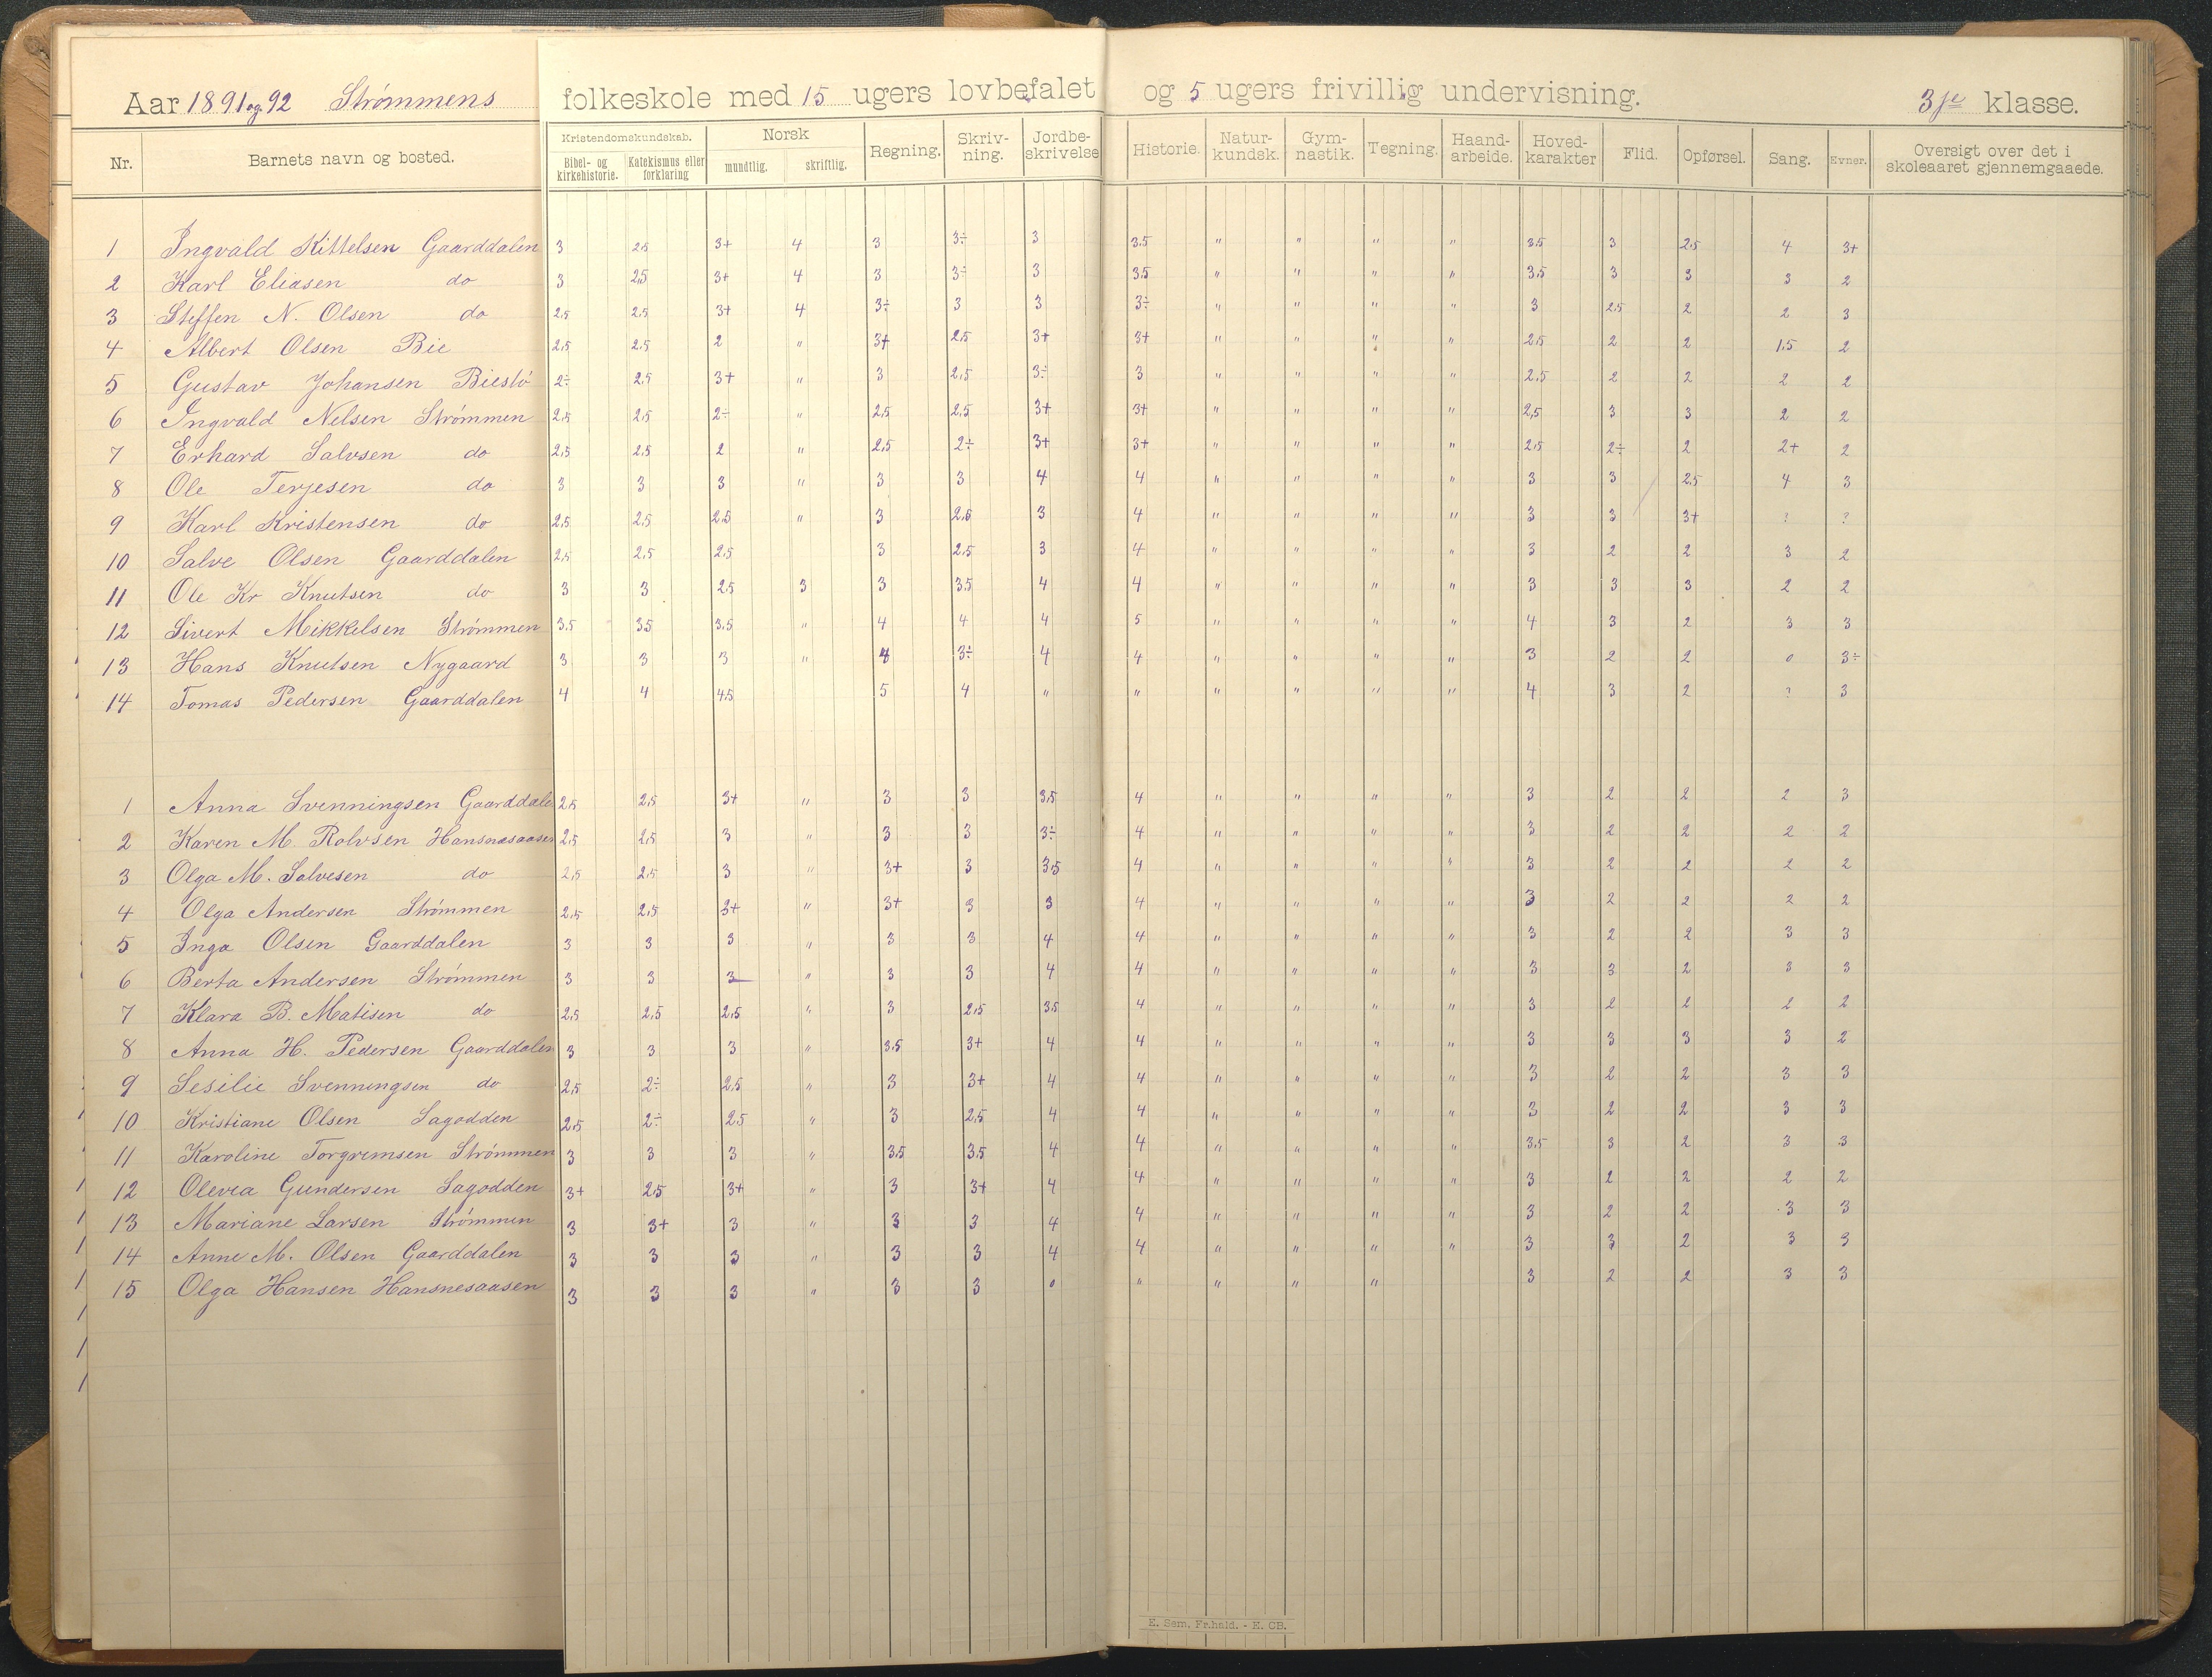 Aar 1891 og 92 Strømmens folkeskole med 15 ugers lovbefalet og 5 ugers frivillig undervisning. 3je klasse.
Nr. Barnets navn og bosted. Kristendomskundskab. Bibel- og kirkehistorie. Katekismus eller forklaring Norsk mundtlig. skriftlig. Regning. Skriv-ning. Jordbe-skrivelse Historie. Natur-kundsk. Gym-nastik. Tegning. Haand-arbeide. Hoved-karakter Flid. Opførsel. Sang. Evner. Oversigt over det i skoleaaret gjennemgaaede.
1 Ingvald Kittelsen Gaarddalen 3 2,5 3+ 4 3 3÷ 3 3,5 " " " " 3,5 3 2,5 4 3+
2 Karl Eliasen do 3 2,5 3+ 4 3 3÷ 3 3,5 " " " " 3,5 3 3 3 2
3 Steffen N. Olsen do 2,5 2,5 3+ 4 3÷ 3 3 3÷ " " " " 3 2,5 2 2 3
4 Albert Olsen Bie 2,5 2,5 2 " 3+ 2,5 3+ 3+ " " " " 2,5 2 2 1,5 2
5 Gustav Johansen Bieslö 2÷ 2,5 3+ " 3 2,5 3÷ 3 " " " " 2,5 2 2 2 2
6 Ingvald Nelsen Strømmen 2,5 2,5 2÷ " 2,5 2,5 3+ 3+ " " " " 2,5 3 3 2 2
7 Erhard Salvsen do 2,5 2,5 2 " 2,5 2÷ 3+ 3+ " " " " 2,5 2÷ 2 2+ 2
8 Ole Terjesen do 3 3 3 " 3 3 4 4 " " " " 3 3 2,5 4 3
9 Karl Kristensen do 2,5 2,5 2,5 " 3 2,5 3 4 " " " " 3 3 3+ ? ?
10 Salve Olsen Gaarddalen 2,5 2,5 2,5 3 2,5 3 4 " " " " 3 2 2 3 2
11 Ole Kr Knutsen do 3 3 2,5 3 3 3,5 4 4 " " " " 3 3 3 2 2
12 Sivert Mikkelsen Strømmen 3,5 3,5 3,5 " 4 4 4 5 " " " " 4 3 2 3 3
13 Hans Knutsen Nygaard 3 3 3 " 4 3÷ 4 4 " " " " 3 2 2 0 3÷
14 Tomas Pedersen Gaarddalen 4 4 4,5 5 4 " " " " " " 4 3 2 ? 3
1 Anna Svenningsen Gaarddale 2,5 2,5 3+ " 3 3 3,5 4 " " " " 3 2 2 2 3
2 Karen M. Rolvsen Hansnasaasen 2,5 2,5 3 " 3 3 3÷ 4 " " " " 3 2 2 2 2
3 Olga M. Salvesen do 2,5 2,5 3 " 3+ 3 3,5 4 " " " " 3 2 2 2 2
4 Olga Andersen Strømmen 2,5 2,5 3+ " 3+ 3 3 4 " " " " 3 2 2 2 2
5 Inga Olsen Gaarddalen 3 3 3 " 3 3 4 4 " " " " 3 2 2 3 3
6 Berta Andersen Strømmen 3 3 3 " 3 3 4 4 " " " " 3 3 2 3 3
7 Klara B. Matisen do 2,5 2,5 2,5 " 3 2,5 3,5 4 " " " " 3 2 2 2 2
8 Anna H. Pedersen Gaarddalen 3 3 3 " 3,5 3+ 4 4 " " " " 3 3 3 3 2
9 Sesilie Svenningsen do 2,5 2÷ 2,5 " 3 3+ 4 4 " " " " 3 2 2 3 3
10 Kristiane Olsen Sagodden 2,5 2÷ 2,5 " 3 2,5 4 4 " " " " 3 2 2 3 3
11 Karoline Torgremsen Strømmen 3 3 3 " 3,5 3,5 4 4 " " " " 3,5 3 2 3 3
12 Olevea Gundersen Sagodden 3+ 2,5 3+ " 3 3+ 4 4 " " " " 3 2 2 2 2
13 Mariane Larsen Strømmen 3 3+ 3 " 3 3 4 4 " " " " 3 2 2 3 3
14 Anne M. Olsen Gaarddalen 3 3 3 " 3 3 4 4 " " " " 3 3 2 3 3
15 Olga Hansen Hansnesaasen 3 3 3 " 3 3 0 " " " " 3 2 2 3 3